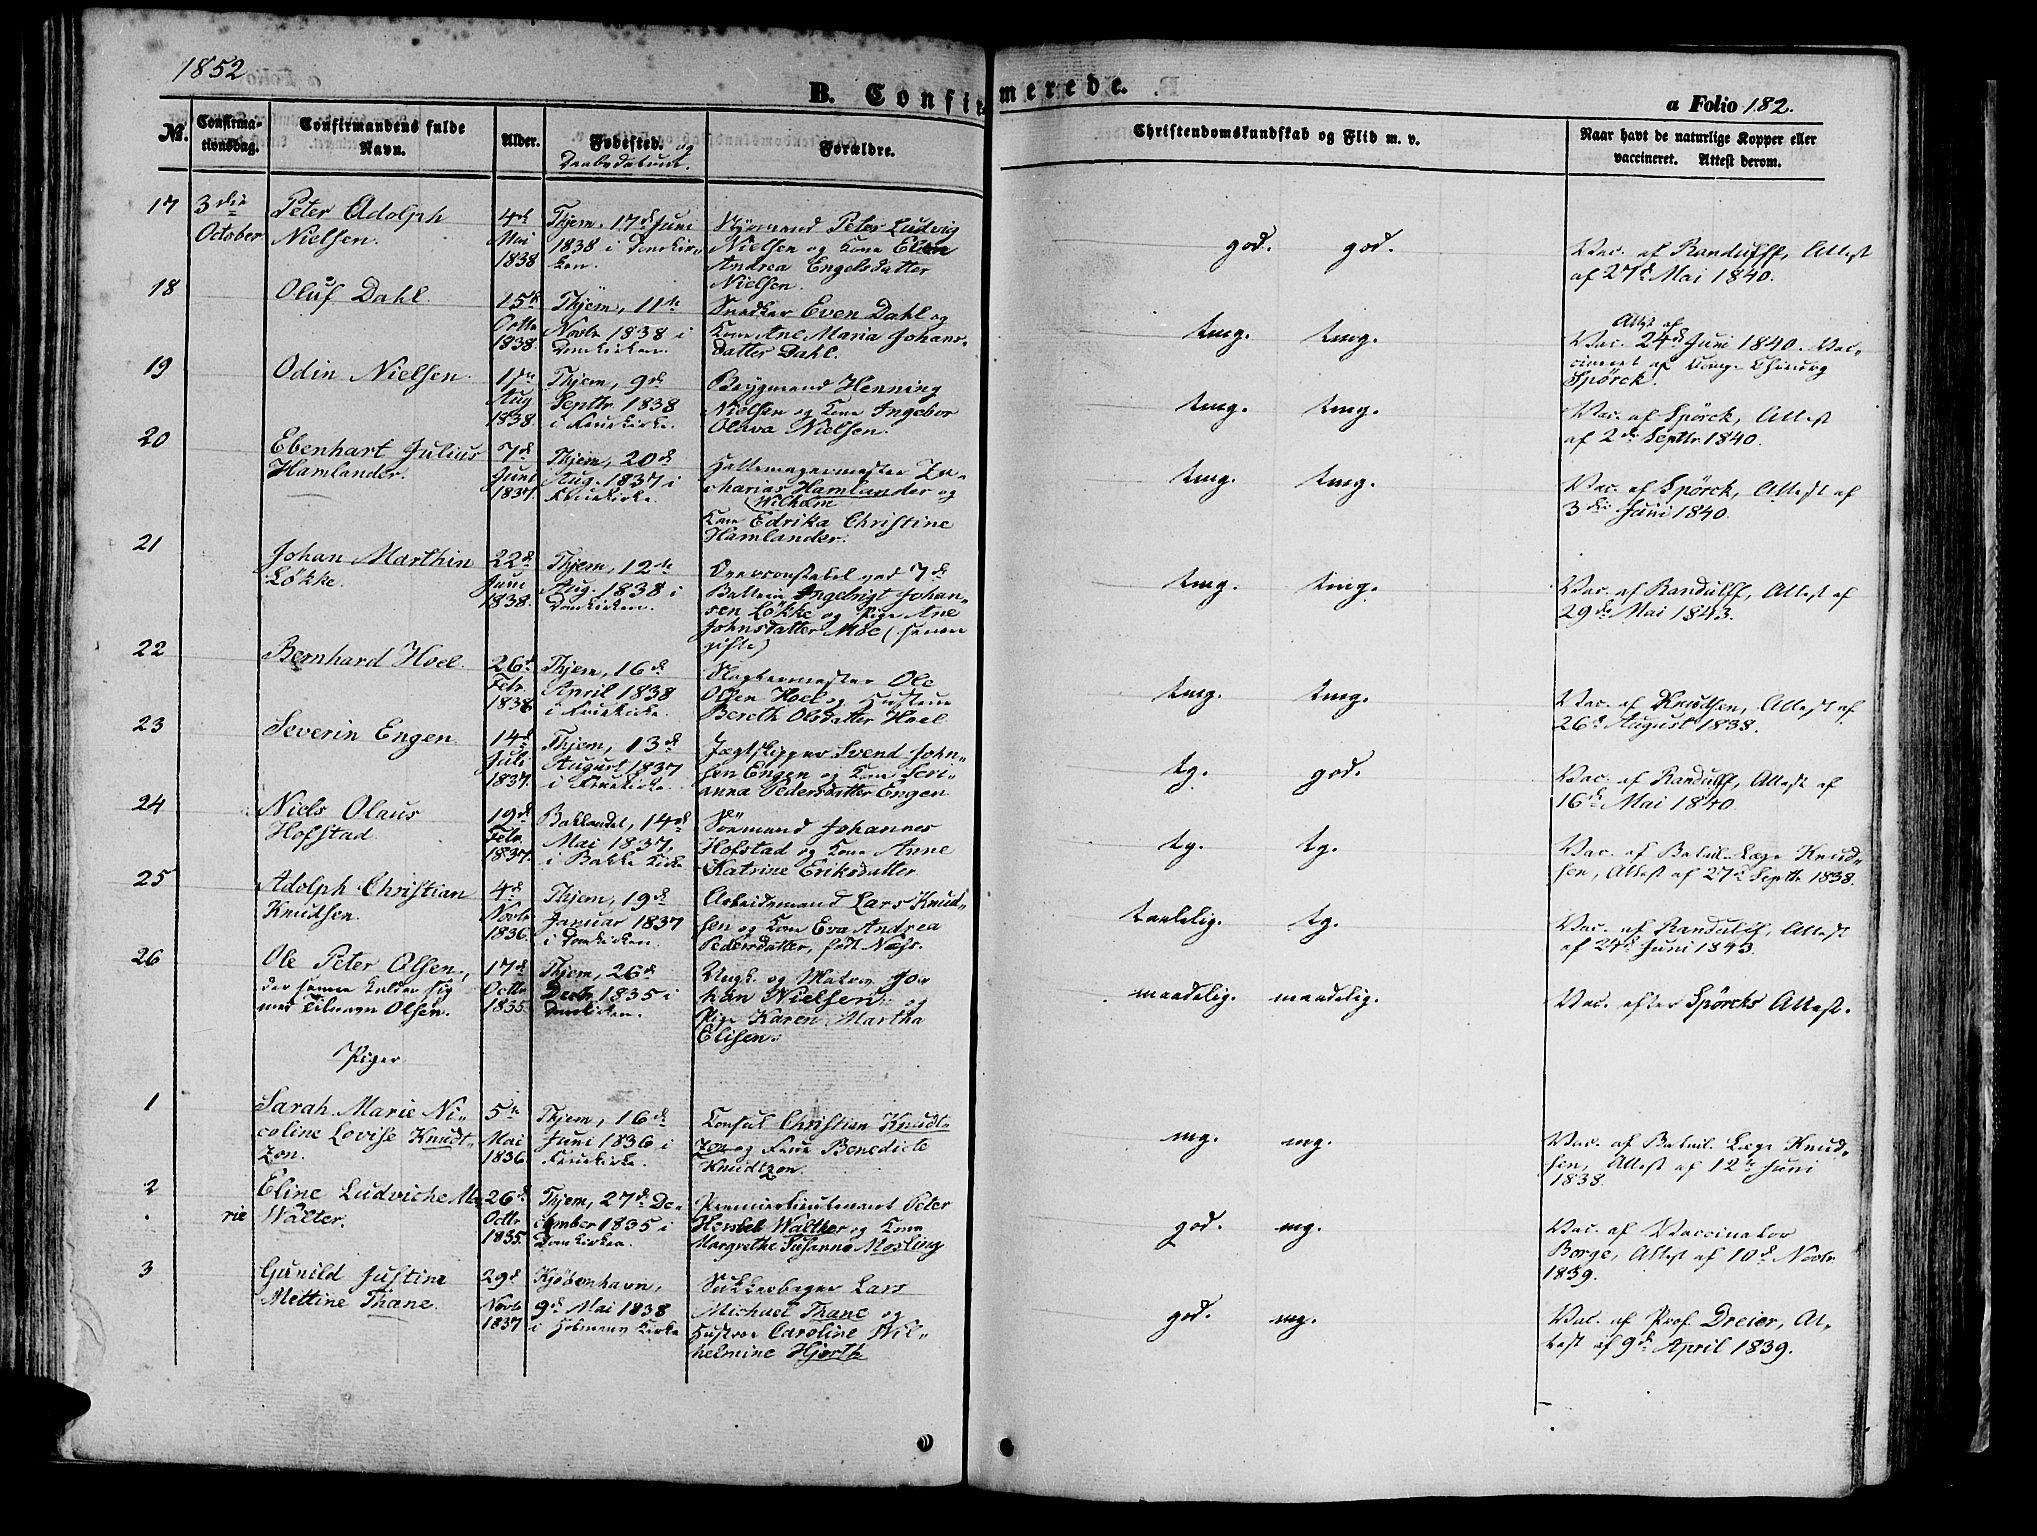 1852
B. Confirmerede.
a Folio 182.
No.
Confirma-
tionsdag.
Confirmandens fulde
Navn.
Alder.
Fødested. og
Daabsdatum.
Forældre.
Christendomskundskab og Flid m. v.
Naar havt de naturlige Kopper eller
vaccineret. Attest derom.
17
3die
October
Peter Adolph
Nielsen.
4de
Mai
1838
Thjem. 17de Juni
1838 i Domkir-
ken.
Bygmand Peter Ludvig
Nielsen og Kone Elen
Andrea Engelsdatter
Nielsen.
god. god.
Vac. af Randulff, Attest
af 27de Mai 1840.
18
Oluf Dahl.
15de
Octbr
1838.
Thjem, 11te
Novbr 1838 i
Domkirken.
Snedker Even Dahl og
Kone Ane Maria Johans-
datter Dahl.
tmg. tmg.
Attest af
Vac. 24de Juni 1840. Vac-
cineret af Comp. Chirurg
Spörck.
19
Odin Nielsen
17de
Aug
1838.
Thjem, 9de
Septbr 1838
i Fruekirke.
Brygmand Henning
Nielsen og Kone Ingebor
Olava Nielsen.
tmg. tmg.
Vac. af Spörck, Attest
af 2den Septbr 1840.
20
Ebenhart Julius
Hamlander.
7de
Juni
1837.
Thjem, 20de
Aug. 1837 i
Fruekirke.
Hattemagermester Za-
charias Hamlander og
Wilhelm
Kone Edrika Christine
Hamlander.
tmg. tmg.
Vac. af Spörck, Attest af
3die Juni 1840.
21
Johan Marthin
Løkke.
22de
Juni
1838.
Thjem, 12te
Aug. 1838 i
Domkirken.
Overconstabel ved 7de
Batteri Ingebrigt Johan-
sen Løkke og Pige Ane
Johnsdatter Moe (senere
gifte)
tmg. tmg.
Vac. af Randulff, Attest af
29de Mai 1843.
22
Bernhard Hoel.
26de
Febr.
1838.
Thjem, 16de
April 1838
i Fruekirke.
Slagtermester Ole
Olsen Hoel og Hustrue
Bereth Olsdatter Hoel
tmg. tmg.
Vac. af Knudtsen, Attest af
26de August 1838.
23
Severin Engen.
14de
Juli
1837.
Thjem, 13de
August 1837
i Fruekirke.
Jægtskipper Svend John-
sen Engen og Kone Seri-
anna Pedersdatter Engen
tg. god.
Vac. af Randulff, Attest af
16de Mai 1840.
24
Niels Olaus
Hofstad
19de
Febr.
1837.
Baklandet, 14de
Mai 1837,
i Bakke Kirke
Sömand Johannes
Hofstad og Kone Anne
Katrine Eriksdatter
tg. tg.
Vac. af Batail. Læge Knud-
sen, Attest af 27de Septbr 1838.
25
Adolph Christian
Knudsen.
4de
Novbr
1836.
Thjem, 19de
Januar 1837
i Domkirken.
Arbeidsmand Lars Knud-
sen og Kone Eva Andrea
Pedersdatter, født Næss.
taalelig. tg.
Vac. af Randulff, Attest
af 24de Juni 1843.
26
Ole Peter Olsen,
der senere kalder sig
med Tilnavn Olsen.
17de
Octbr
1835
Thjem, 26de
Decbr. 1835 i
Domkirken.
Ungk. og Matros Jo-
han Nielsen og
Pige Karen Martha
Elisen.
maadelig. maadelig.
Vac. efter Spörcks Attest.
Piger
1
Sarah Marie Ni-
coline Lovise Knudt-
zon.
5te
Mai
1836.
Thjem, 16de
Juni 1836 i
Fruekirke.
Consul Christian Knudt-
zon og Frue Benedicte
Knudtzon.
mg. mg.
Vac. af Batail. Læge Knud-
sen, Attest af 12te Juni
1838.
2
Eline Ludviche Ma-
rie Walter.
26de
Octbr
1835.
Thjem, 27de De-
cember 1835 i
Domkirken.
Premierlieutenant Peter
Herskel Walther og Kone
Margrethe Susanna Mosling
god. mg.
Vac. af Vaccinator
Borge, Attest af 10de Novbr.
1839.
3
Gunild Justine
Mettine Thane.
29de
Novbr
1837
Kjøbenhavn,
9de Mai 1838
i Holmens Kirke
Sukkerbager Lars
Michael Thane og
Hustrue Caroline Vil-
helmine Hjorth
god. mg.
Vac. af Prof. Dreier, At-
test af 9de April 1839.